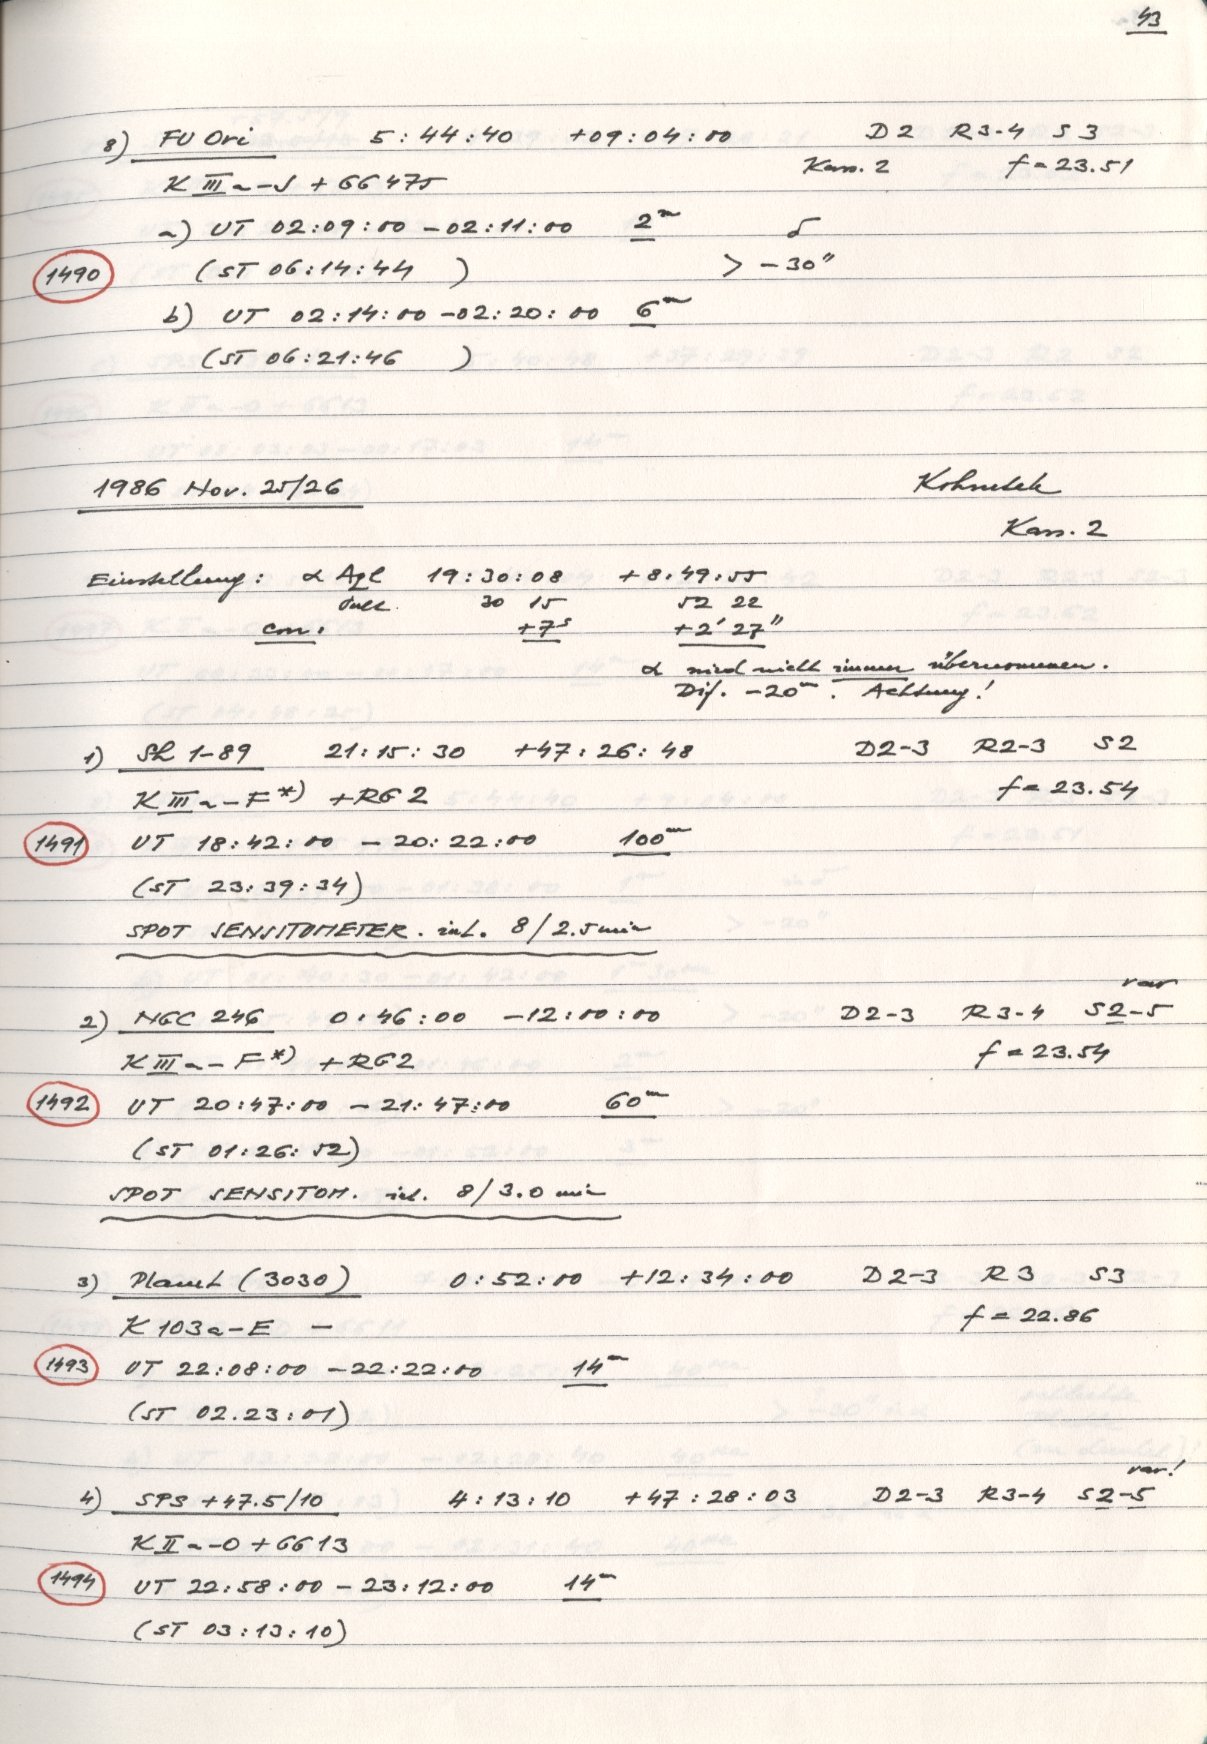 43
8) FU Ori 5:44:40 +09:04:00 D2 R3-4 S3
K IIIa-J + GG475 Kass. 2 f = 23.51
a) UT 02:09:00 - 02:11:00 2m δ
1490 (ST 06:14:44 ) > -30"
b) UT 02:14:00 - 02:20:00 6m
(ST 06:21:46 )
1986 Nov. 25/26 Kohoutek
Kass. 2
Einstellung: α Aql 19:30:08 +8:49:55
30 15 52 22
corr. +7s +2' 27"
α wird nicht immer übernommen.
Dif. -20m. Achtung!
1) Sh 1-89 21:15:30 +47:26:48 D2-3 R2-3 S2
K IIIa-F*) +RG2 f = 23.54
1491 UT 18:42:00 - 20:22:00 100m
(ST 23:39:34)
SPOT SENSITOMETER. int. 8/2.5 min
2) NGC 246 0:46:00 -12:00:00 D2-3 R3-4 S2-5 var
K IIIa-F*) +RG2 f = 23.54
1492 UT 20:47:00 - 21:47:00 60m
(ST 01:26:52)
SPOT SENSITOM. int. 8/3.0 min
3) Planet (3030) 0:52:00 +12:34:00 D2-3 R3 S3
K 103a-E - f = 22.86
1493 UT 22:08:00 - 22:22:00 14m
(ST 02.23:01)
4) SPS +47.5/10 4:13:10 +47:28:03 D2-3 R3-4 S2-5 var!
K IIa-O + GG13
1494 UT 22:58:00 - 23:12:00 14m
(ST 03:13:10)